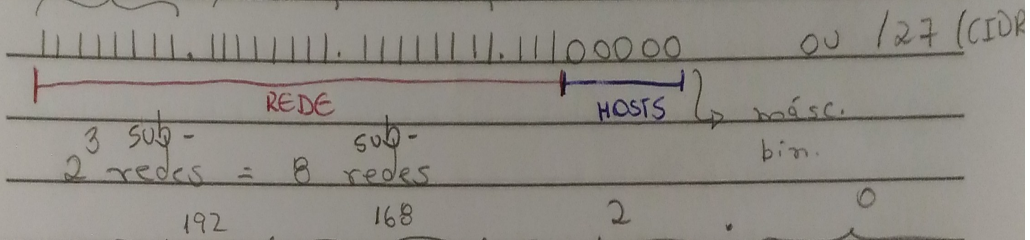 11111111.11111111.11111111.11100000 ou /27 (CIDR
REDE HOSTS ↳ másc. bin.
2³ sub-redes = 8 sub-redes
192 168 2 . 0